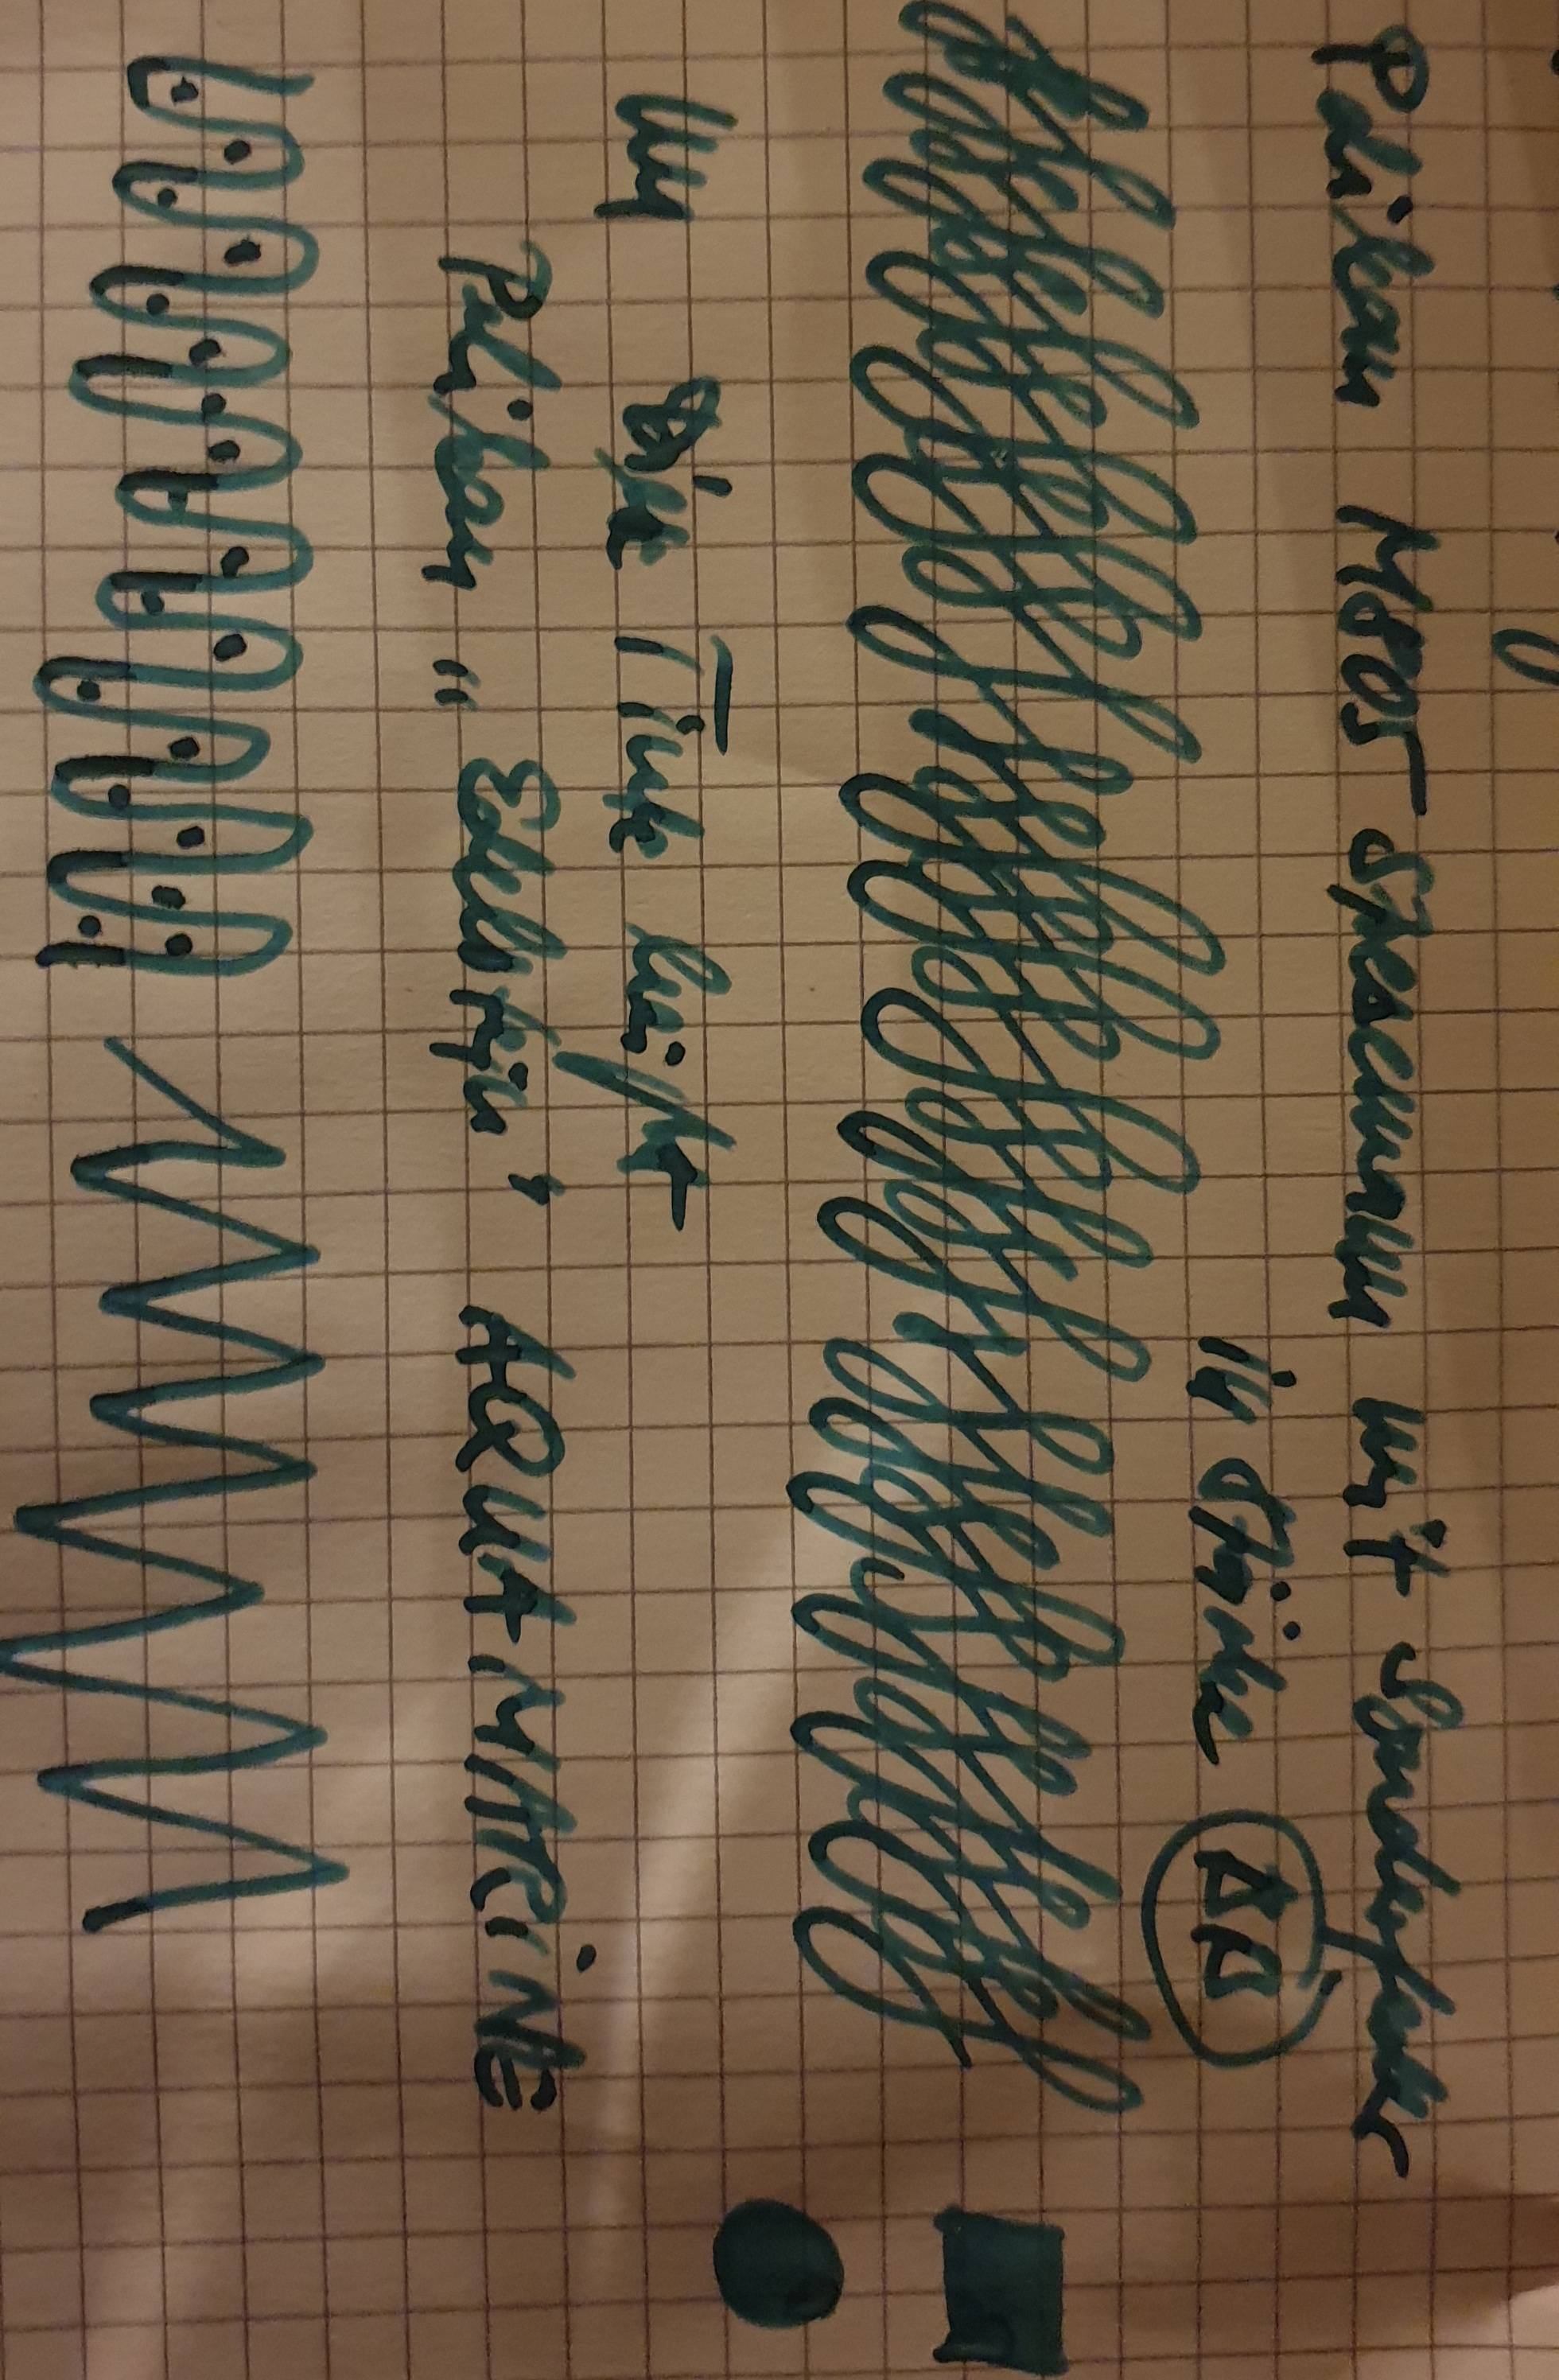 Pelikan M805 Stresemann mit Sonderfeder
in Stärke BB
Die Tinte heißt
Pelikan "Edelstein" AQUAMARiNE